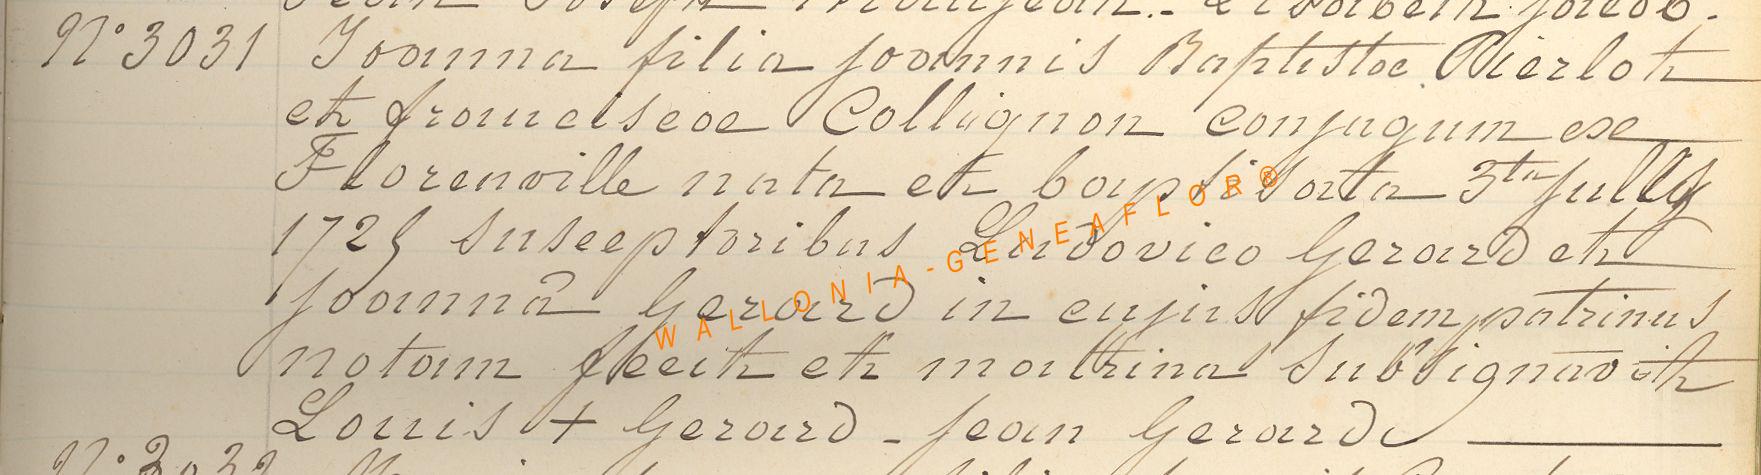 Jean Joseph
N° 3031 Joanna filia joannis Baptistae Pierlot
et franciscae Collignon conjugum ex
Florenville nata et baptisata 3ta july
1725 susceptoribus Ludovico Gerard et
joannâ Gerard in cujus fidem patrinus
notam fecit et matrina subsignavit
Louis + Gerard - jean Gerard
N° 3032
WALLONIA-GENEAFLOR®